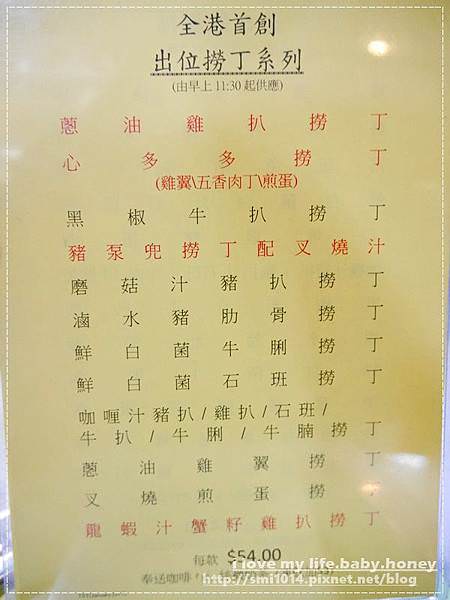 全港首創
出位撈丁系列
(由早上 11:30 起供應)
蔥油雞扒撈丁
心多多撈丁
(雞翼\五香肉丁\煎蛋)
黑椒牛扒撈丁
豬泵兜撈丁配叉燒汁
磨菇汁豬扒撈丁
滷水豬肋骨撈丁
鮮白菌牛脷撈丁
鮮白菌石班撈丁
咖喱汁豬扒/雞扒/石班/
牛扒/牛脷/牛腩撈丁
蔥油雞翼撈丁
叉燒煎蛋撈丁
龍蝦汁蟹籽雞扒撈丁
每款 $54.00
奉送咖啡
i love my life.baby.honey
http://smi1014.pixnet.net/blog